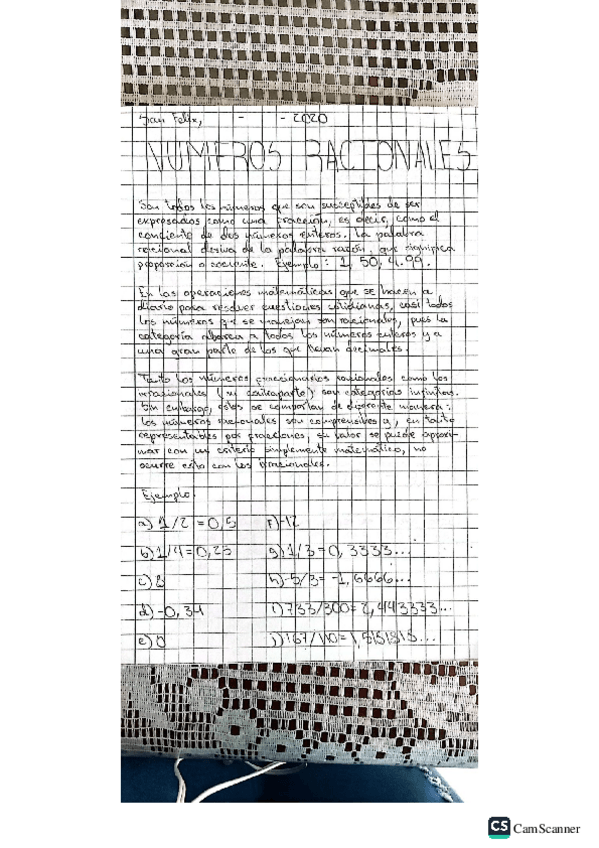 San Felix, - - 2020
NUMEROS RACIONALES
Son todos los números que son susceptibles de ser
expresados como una fracción, es decir, como el
cociente de dos números enteros. La palabra
racional deriva de la palabra razón, que significa
proporción o cociente. Ejemplo: 1, 50, 4.99.
En las operaciones matemáticas que se hacen a
diario para resolver cuestiones cotidianas, casi todos
los números que se manejan son racionales, pues la
categoría abarca a todos los números enteros y a
una gran parte de los que llevan decimales.
Tanto los números fraccionarios racionales como los
irracionales (su contraparte) son categorías infinitas.
Sin embargo, éstos se comportan de diferente manera:
los números racionales son comprensibles y, en tanto
representables por fracciones, su valor se puede aproxi-
mar con un criterio simplemente matemático, no
ocurre esto con los irracionales.
Ejemplo:
a) 1/2 = 0,5 f) -12
b) 1/4 = 0,25 g) 1/3 = 0,3333...
c) 8 h) -5/3 = -1,6666...
d) -0,34 i) 733/300 = 2,443333...
e) 0 j) 167/110 = 1,5181818...
CS CamScanner